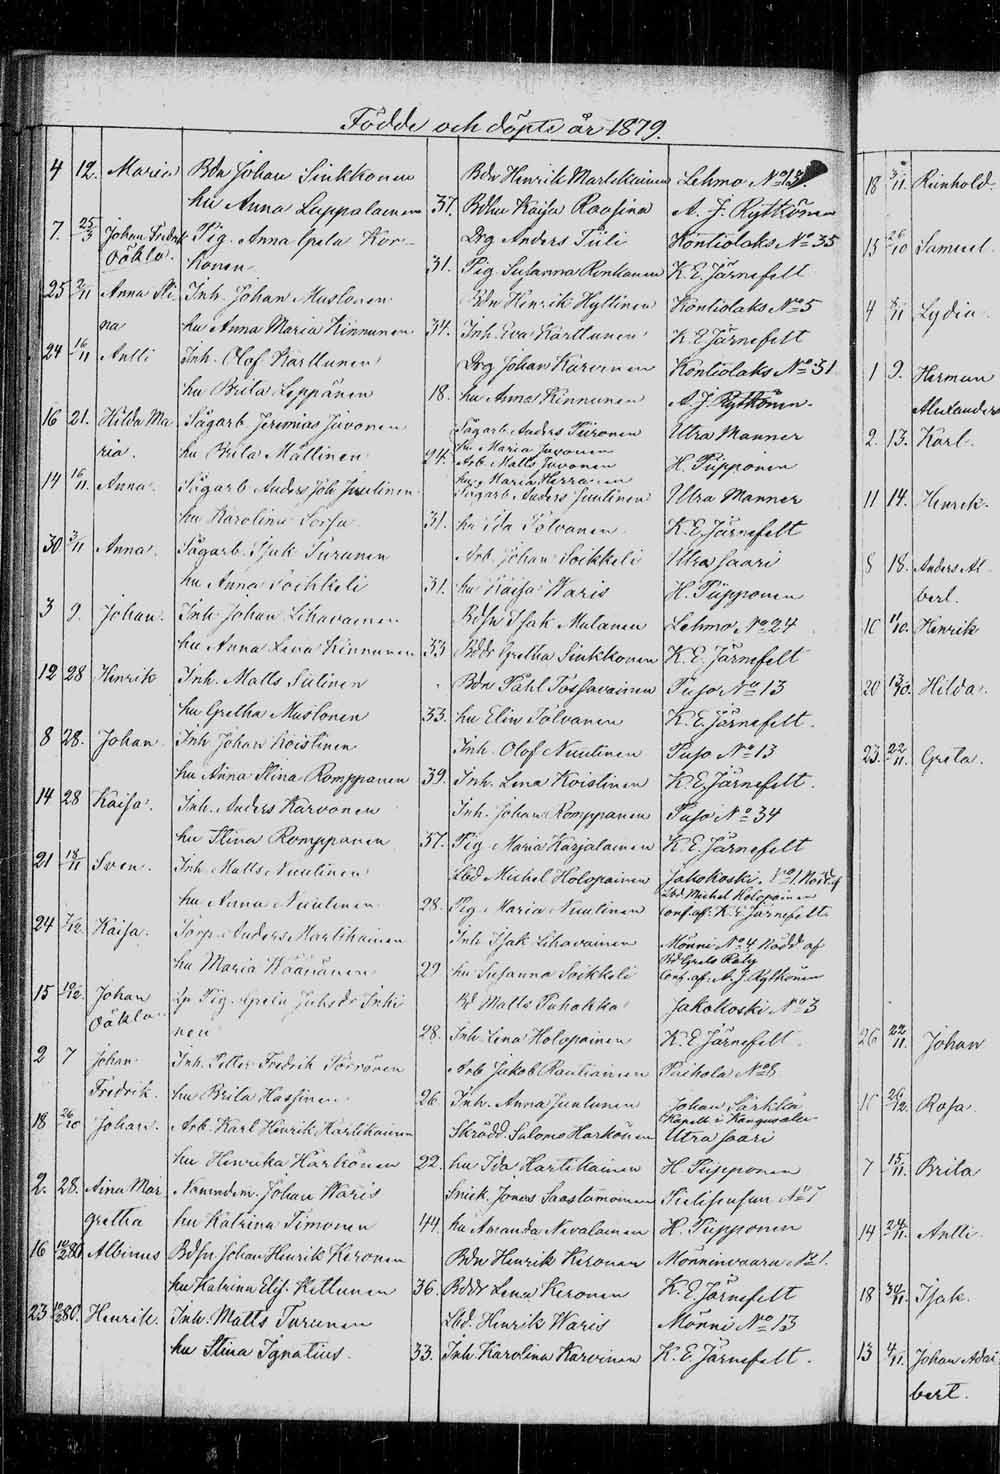 Födde och döpte år 1879.
4 12. Maria Bdn Johan Sinkkonen Bdn Henrik Martikainen Lehmo No 13.
hu Anna Lappalainen 37. Bdhu Kaisa Raasina A. J. Rytkönen
7. 25/3 Johan Fredrik Pig. Anna Greta Kor- Drg Anders Piili Kontiolaks No 35
Oäkta. honen 31. Pig. Susanna Renkonen K. E. Järnefelt
25 2/11 Anna Sti- Inh. Johan Mustonen Bdn Henrik Hyttinen Kontiolaks No 5
na hu Anna Maria Kinnunen 34. Inh. Eva Karttunen K. E. Järnefelt
24 16/11 Antti Inh. Olof Karttunen Drg Johan Karvinen Kontiolaks No 31
hu Brita Leppänen 18. hu Anna Kinnunen A. J. Rytkönen.
16 21. Hilda Ma- Sågarb Jeremias Juvonen Sågarb Anders Piironen Utra Manner
ria. hu Brita Mällinen 24. hu Maria Juvonen
Arb. Matts Juvonen H. Piipponen
hu Maria
14 16/11. Anna. Sågarb Anders Joh Juutinen Sågarb Anders Juutinen Utra Manner
hu Karolina Sorsa 31. hu Ida Tolvanen K. E. Järnefelt
30 3/11 Anna. Sågarb. Isak Turunen Arb. Johan Soikkeli Utra Saari
hu Anna Soikkeli 31. hu Kaisa Waris H. Piipponen
3 9. Johan. Inh Johan Lihavainen Bdsn Isak Mulanen Lehmo No 24
hu Anna Lena Kinnunen 33 Bddr Gretha Sinkkonen K. E. Järnefelt
12 28 Henrik Inh. Matts Siitinen Bdn Påhl Tossavainen Puso No 13
hu Gretha Mustonen 33. hu Elin Tolvanen K. E. Järnefelt.
8 28. Johan Inh Johan Koistinen Inh. Olof Nuutinen Puso No 13
hu Anna Stina Romppanen 39. Inh. Lena Koistinen K. E. Järnefelt.
14 28 Kaisa. Inh. Anders Karvonen Inh. Johan Romppanen Puso No 34
hu Stina Romppanen 37. Pig Maria Karjalainen K. E. Järnefelt
21 18/11 Sven. Inh Matts Nuutinen Lbd Michel Holopainen Jakokoski No 1. Nödd. af
Lbd Michel Holopainen
hu Anna Nuutinen 28. Pig. Maria Nuutinen conf. af: K. E. Järnefelt
24 7/12. Kaisa. Torp. Anders Martikainen Inh Isak Lihavainen Mönni No 4 Nödd af
Bd Greta Raty
hu Maria Wäänänen 29 hu Susanna Soikkeli Conf. af. A. J. Rytkönen
15 19/12. Johan Lp Pig. Greta Juhsdr Inki- Bd Matts Puhakka Jakokoski No 3
Oäkta nen 28. Inh. Lena Holopainen K. E. Järnefelt.
2 7 Johan Inh. Petter Fredrik Törrönen Arb Jakob Rautiainen Paihola No 8
Fredrik. hu Brita Hassinen 26 Inh. Anna Juntunen Johan Särkkä
Kapell: i Kangasala
18 26/10 Johan. Arb. Karl Henrik Hartikainen Skrädd Salomo Harkönen Utra Saari
hu Henrika Härkönen 22. hu Ida Hartikainen H. Piipponen
2. 28. Aina Mar- Nämndem. Johan Waris Snick. Jonas Saastamoinen No 7
gretha hu Katrina Timonen 44 hu Amanda Nevalainen H. Piipponen
16 Albinus Bdsn Johan Henrik Keronen Bdn Henrik Keronen Mönninvaara No 1.
hu Katrina Elis. Kettunen 36. Bddr Lena Keronen K. E. Järnefelt
23 Henrik. Inh. Matts Turunen Lbd. Henrik Waris Mönni No 13
hu Stina Ignatius. 33. Inh. Karolina Karvinen K. E. Järnefelt.
18 3/11. Reinhold.
15 26/10 Samuel.
4 Lydia.
1 9. Herman
Alexander
2. 13. Karl.
11 14. Henrik.
8 18. Anders Al-
bert.
Henrik
20 13/10. Hilda.
23. 22/11. Greta.
26 22/11. Johan
Rosa.
7 15/11. Brita
14 24/11. Antti.
18 30/11. Isak.
13 4/11. Johan
bert.